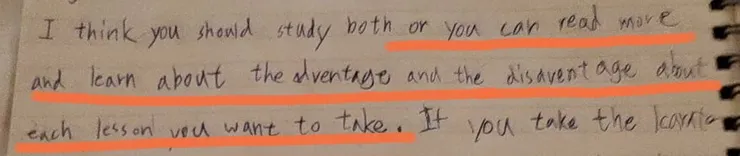 I think you should study both or you can read more
and learn about the adventage and the disaventage about
each lesson you want to take. If you take the